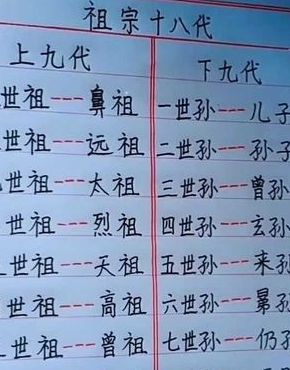 祖宗十八代
上九代 下九代
世祖---鼻祖 一世孙---儿子
世祖---远祖 二世孙---孙子
世祖---太祖 三世孙---曾孙
世祖---烈祖 四世孙---玄孙
世祖---天祖 五世孙---来孙
世祖---高祖 六世孙---晜孙
世祖---曾祖 七世孙---仍孙